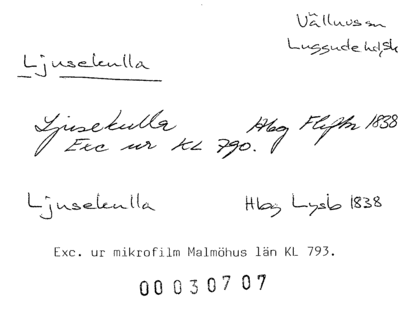 Välluvs sn
Luggude hd, Sk
Ljusekulla
Ljusekulla Hbg Flygbr 1838
Exc ur KL 790.
Ljusekulla Hbg Lysb 1838
Exc. ur mikrofilm Malmöhus län KL 793.
00030707